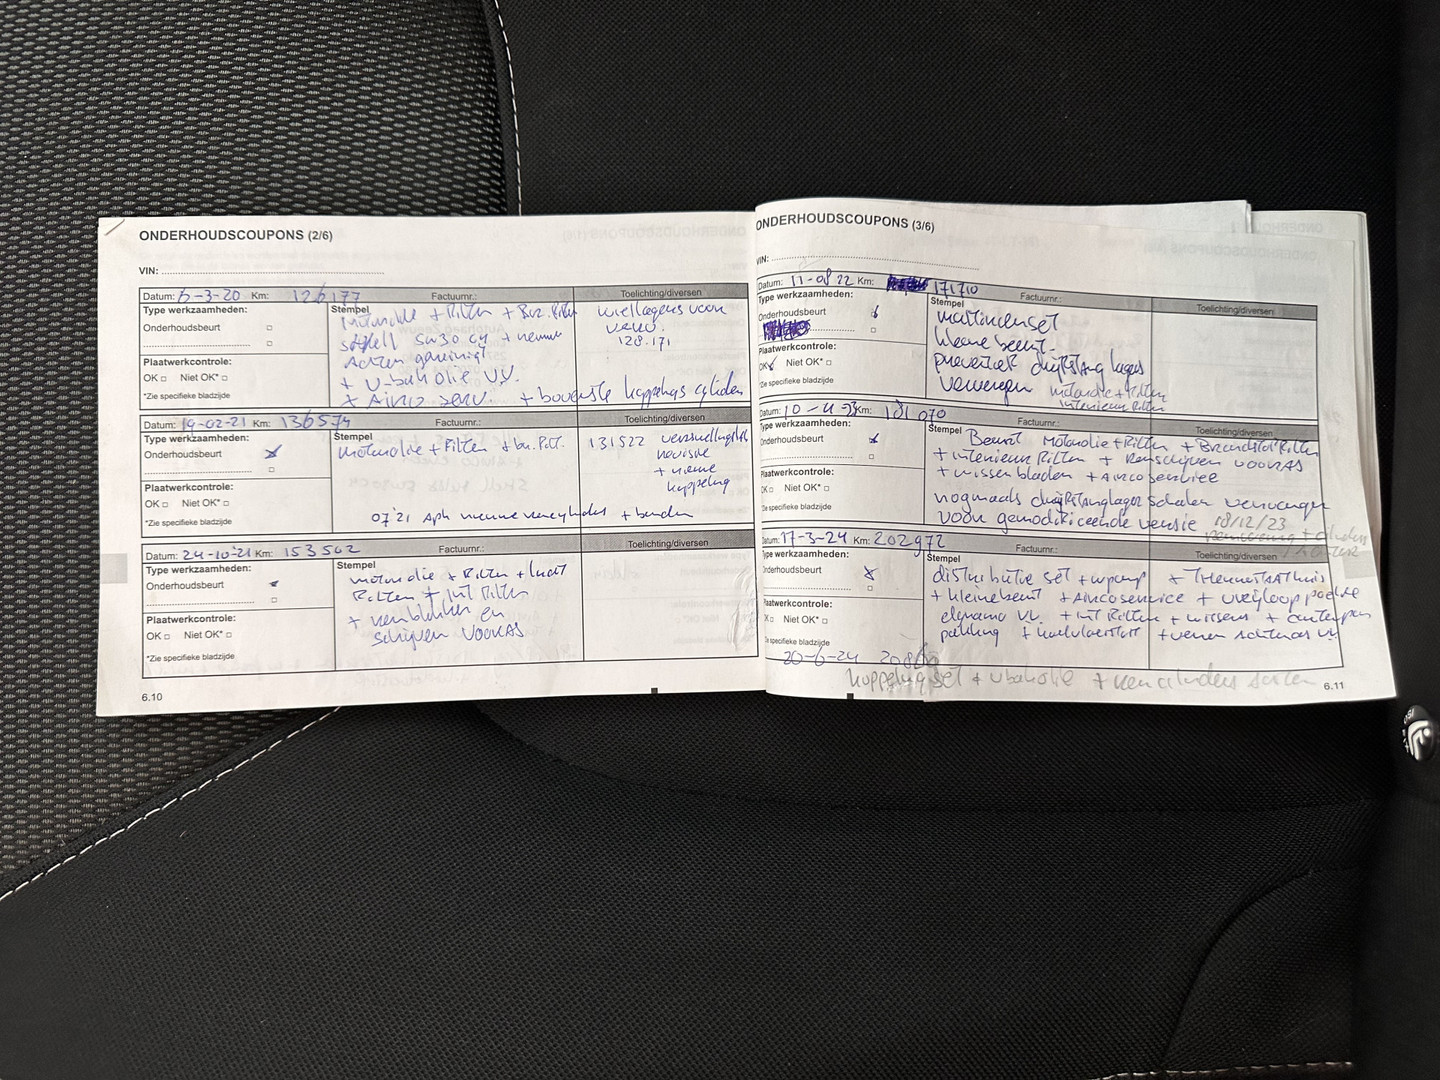 ONDERHOUDSCOUPONS (2/6)
VIN:
Datum: 6-3-20 Km: 126177 Factuurnr.: Toelichting/diversen
Type werkzaamheden:
Onderhoudsbeurt
Plaatwerkcontrole:
OK Niet OK*
*Zie specifieke bladzijde
Stempel
motorolie + Filters + Br. Filter
shell 5w30 C4 + nieuwe
+ V-bak olie V.V.
+ Airco serv. + bovenste koppelings cilinder
wiellagers voor
verv.
128.171
Datum: 19-02-21 Km: 136574 Factuurnr.: Toelichting/diversen
Type werkzaamheden:
Onderhoudsbeurt
Plaatwerkcontrole:
OK Niet OK*
*Zie specifieke bladzijde
Stempel
motorolie + Filters + br. Filt.
131522 versnellingsbak
revisie
+ nieuwe
koppeling
07'21 Apk nieuwe remcylinder + banden
Datum: 24-10-21 Km: 153502 Factuurnr.: Toelichting/diversen
Type werkzaamheden:
Onderhoudsbeurt
Plaatwerkcontrole:
OK Niet OK*
*Zie specifieke bladzijde
Stempel
motorolie + Filters + lucht
Filters + Int Filters
+ remblokken en
schijven VOORAS
6.10
ONDERHOUDSCOUPONS (3/6)
VIN:
Datum: 11-08 22 Km: 171710 Factuurnr.: Toelichting/diversen
Type werkzaamheden:
Onderhoudsbeurt
Plaatwerkcontrole:
OK Niet OK*
*Zie specifieke bladzijde
Stempel
multiriemset
kleine beurt.
preventief drijfstang lagers
vervangen motorolie + Filters
interieur Filter
Datum: 10-11-23 Km: 191 070 Factuurnr.: Toelichting/diversen
Type werkzaamheden:
Onderhoudsbeurt
Plaatwerkcontrole:
OK Niet OK*
*Zie specifieke bladzijde
Stempel
Beurt Motorolie + Filters + Brandstof Filter
+ interieur Filter + Remschijven VOORAS
+ wissenbladen + Aircoservice
nogmaals drijfstanglager schalen vervangen
voor gemodificeerde versie 18/12/23
Datum: 17-3-24 Km: 202972 Factuurnr.: Toelichting/diversen
Type werkzaamheden:
Onderhoudsbeurt
Plaatwerkcontrole:
OK Niet OK*
*Zie specifieke bladzijde
Stempel
distributie set + wpomp + Thermostaathuis
+ kleinebeurt + Aircoservice + overloop
dynamo VV. + Int Filters + wissers + carterpan
pakking + koelvloeistof + veren achteras VV
20-6-24
koppelingset + vbakolie + remcilinders achter
6.11